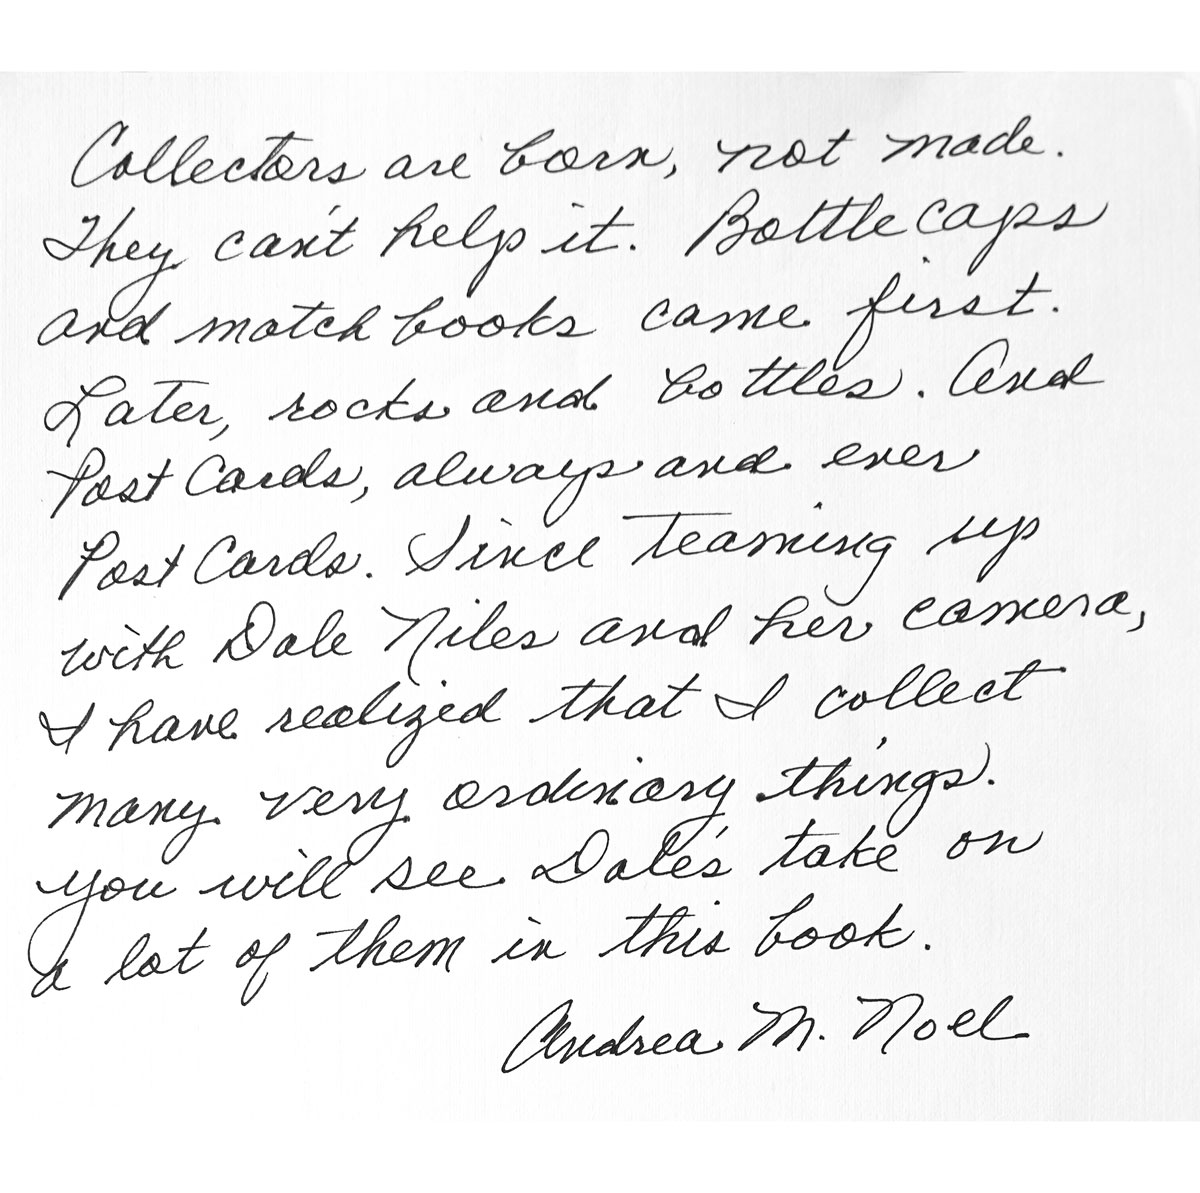 Collectors are born, not made.
They can't help it. Bottle caps
and match books came first.
Later, rocks and bottles. And
Post Cards, always and ever
Post Cards. Since teaming up
with Dale Niles and her camera,
I have realized that I collect
many very ordinary things.
You will see Dale's take on
a lot of them in this book.
Andrea M. Noel